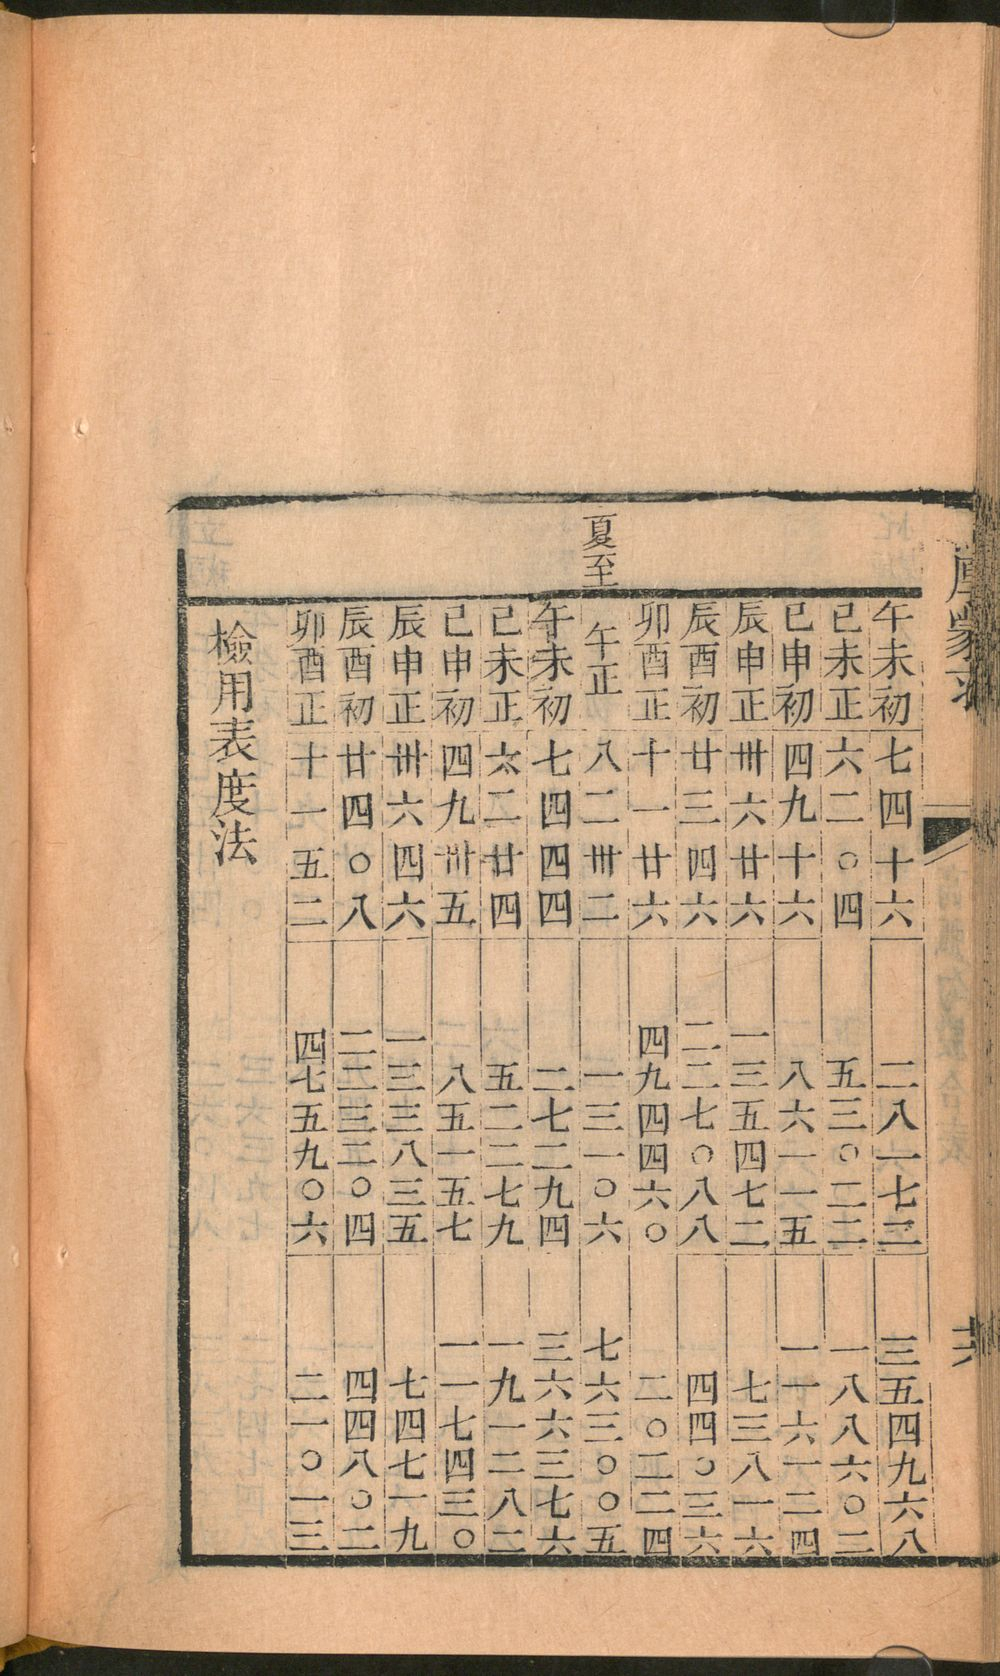 厚蒙求
午未初 七四十六 二八一七三 三五四九六八
巳未正 六二〇四 五三〇二二 一八八六〇二
巳申初 四九十六 八六一一五 一一六一二四
辰申正 卅六廿六 一三五四七二 七三八一六
辰酉初 廿三四六 二二七〇八八 四四〇三六
卯酉正 十一廿六 四九四四六〇 二〇二二四
夏至 午正 八二卅二 一三一〇六 七六三〇〇五
午未初 七四四四 二七二九四 三六六三七六
巳未正 六二廿四 五二二七九 一九一二八二
巳申初 四九卅五 八五一五七 一一七四三〇
辰申正 卅六四六 一三三八三五 七四七一九
辰酉初 廿四〇八 二二三二〇四 四四八〇二
卯酉正 十一五二 四七五九〇六 二一〇一三
檢用表度法